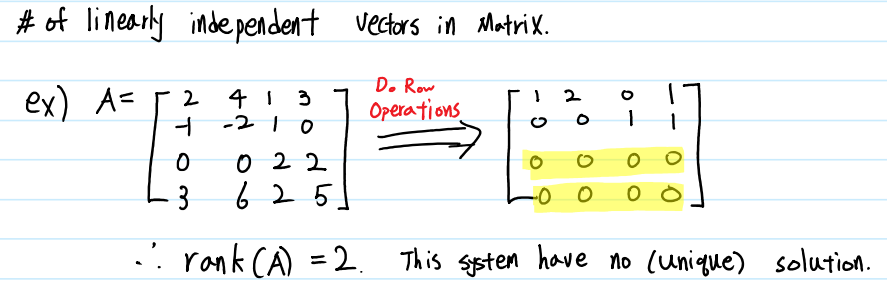 # of linearly independent vectors in Matrix.
ex) A= [ 2 4 1 3 Do Row [ 1 2 0 1 ]
-1 -2 1 0 Operations 0 0 1 1
0 0 2 2 ⟹ 0 0 0 0
3 6 2 5 ] 0 0 0 0 ]
∴ rank(A) = 2. This system have no (unique) solution.